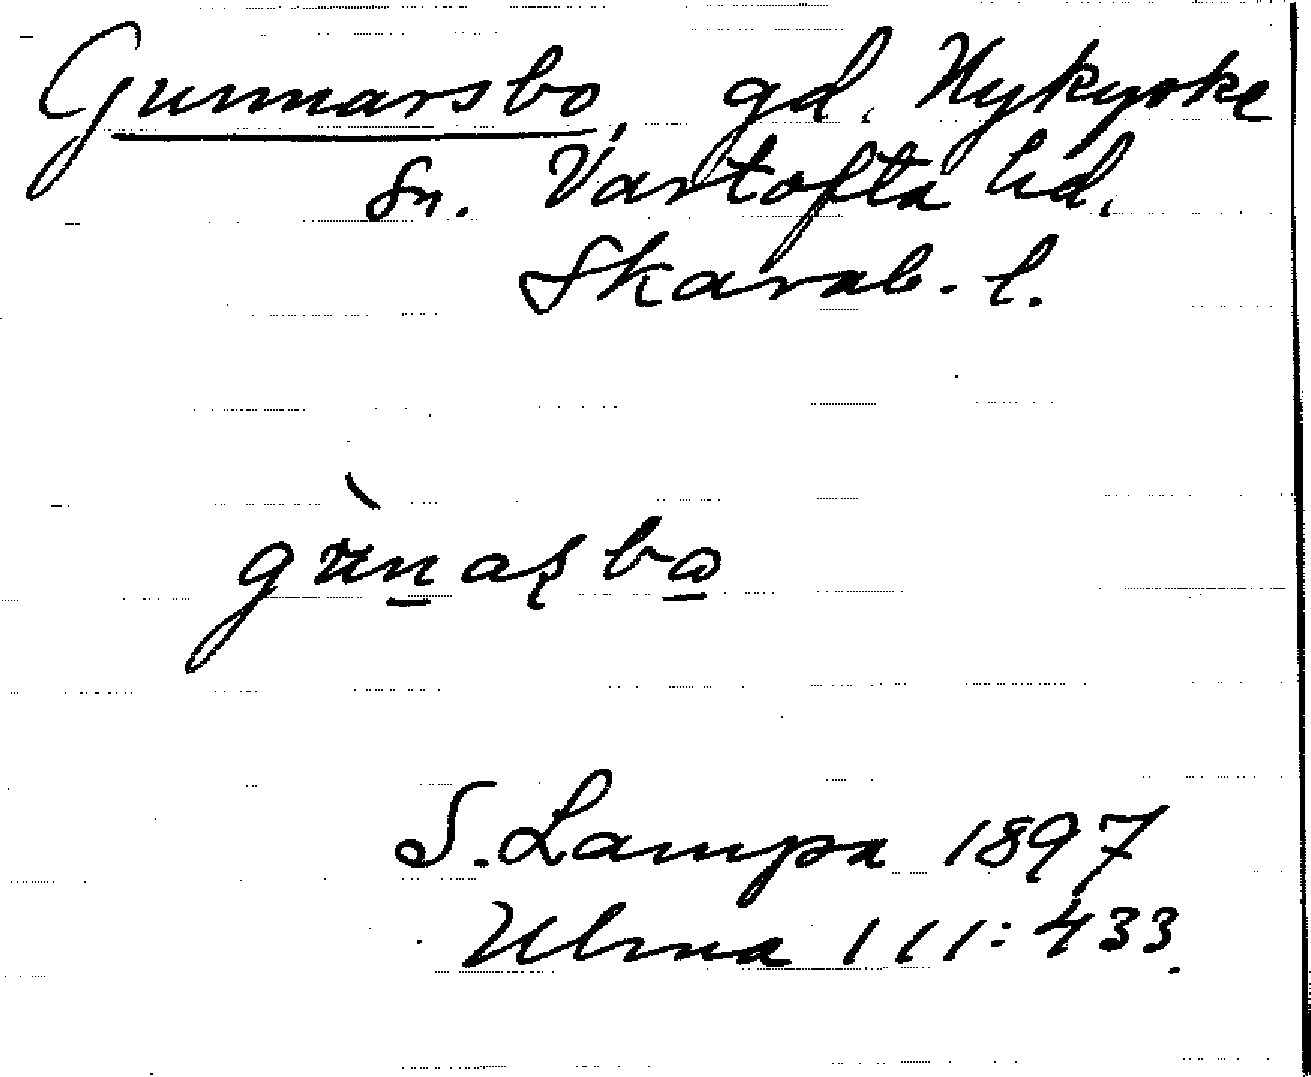 Gunnarsbo, gd. Nykyrke
sn. Vartofta hd.
Skarab. l.
S. Lampa 1897
Ulma 111: 433.